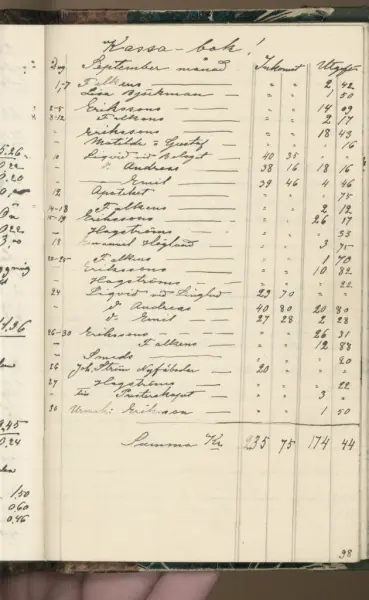 Kassa-bok!
Dag September månad Inkomst Utgift
1-7 Falkens — " " 2 42
Lisa Björkman — " " 1 50
2-8 Erikssons — " " 14 09
8-12 Falkens — " " 2 17
- Erikssons — " " 18 43
- Matilda o Gustaf — " " " 16
10 Liqvid vid Bolaget — 40 35
- D. Andreas — 38 16 18 16
- Emil — 39 46 4 46
12 Apoteket — " " " 75
14-18 Falkens — " " 2 12
15-19 Erikssons — " " 26 17
- Hagströms — " " " 33
13 Emanuel Höglund " " 3 75
20-25 Falkens — " " 1 70
Erikssons — " " 10 82
- Hagströms — " " " 22
24 Liqvid vid 29 70
D Andreas — 40 80 20 80
D. Emil — 27 28 2 28
26-30 Erikssons — " " 26 31
- Falkens — " " 12 88
- Smeds — " " " 20
26 Joh. Ström 20 "
27 Hagströms — " " " 22
- Presterskapet — " " 3 "
30 Eriksson " " 1 50
Summa Kr 235 75 174 44
98
5.26
0.22
1.36
9.45
0.24
1.50
0.60
0.46